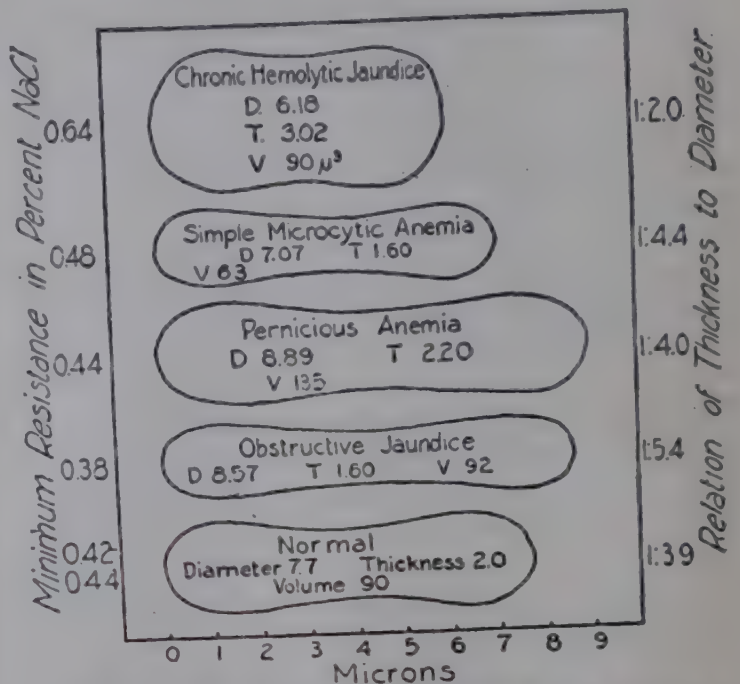 Minimum Resistance in Percent NaCl
0.64
0.48
0.44
0.38
0.42
0.44
Chronic Hemolytic Jaundice
D. 6.18
T. 3.02
V 90 μ³
Simple Microcytic Anemia
D 7.07 T 1.60
V 63
Pernicious Anemia
D 8.89 T 2.20
V 135
Obstructive Jaundice
D 8.57 T 1.60 V 92
Normal
Diameter 7.7 Thickness 2.0
Volume 90
1:2.0
1:4.4
1:4.0
1:5.4
1:39
Relation of Thickness to Diameter.
0 1 2 3 4 5 6 7 8 9
Microns